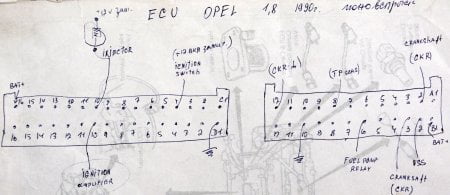 ECU OPEL 1,8 1990г. моновспрыск
+12V зам.
INJECTOR
+12V ПРИ ЗАЖИГ.
IGNITION
SWITCH
(CKR)
(TPsens)
CRANKSHAFT
(CKR)
BAT+
16 15 14 13 12 11 10 9 8 7 6 5 4 3 2 C1
16 15 14 13 12 11 10 9 8 7 6 5 4 3 2 D1
12 11 10 9 8 7 6 5 4 3 2 A1
12 11 10 9 8 7 6 5 4 3 2 B1
BAT+
IGNITION
AMPLIFIER
FUEL PUMP
RELAY
VSS
CRANKSHAFT
(CKR)